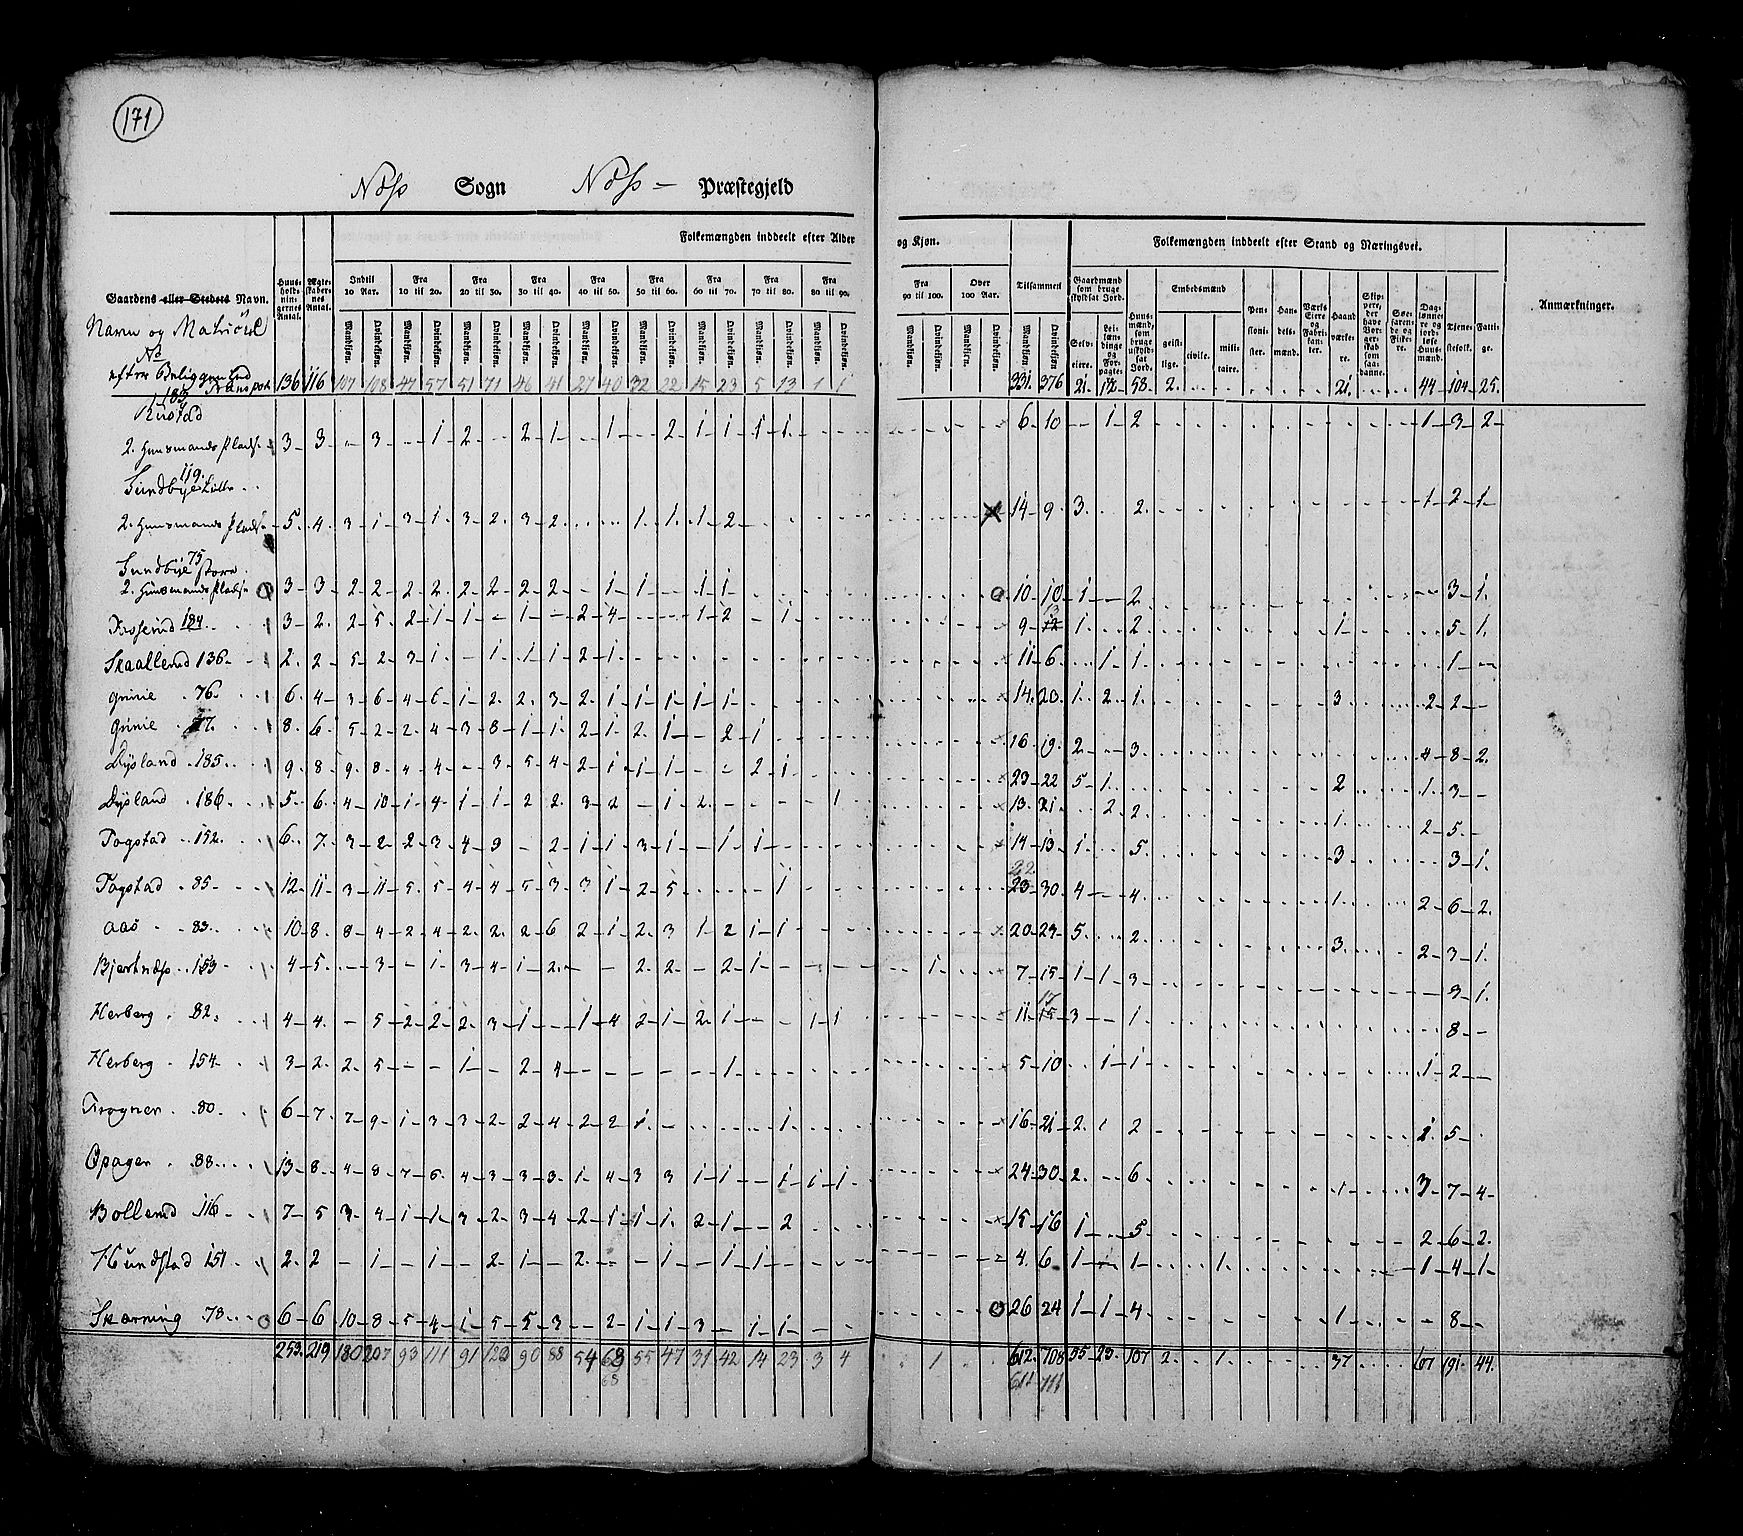 171
Næss Sogn Næss – Præstegjeld
Folkemængden inddeelt efter Alder og Kjøn.
Folkemængden inddeelt efter Stand og Næringsvei.
Gaardens eller Stedets Navn.
Navn og Matricul No efter Beliggenhed
Huusholdningernes Antal.
Ægteskabernes Antal.
Indtil 10 Aar.
Fra 10 til 20.
Fra 20 til 30.
Fra 30 til 40.
Fra 40 til 50.
Fra 50 til 60.
Fra 60 til 70.
Fra 70 til 80.
Fra 80 til 90.
Fra 90 til 100.
Over 100 Aar.
Tilsammen
Mandkjøn. Qvindekjøn.
Gaardmænd som bruge skyldsat Jord.
Selveiere.
Leilændinge og Forpagtere.
Huusmænd, som bruge uskyldsat Jord.
Embedsmænd
geistlige.
civile.
militaire.
Pensionister.
Handelsmænd.
Værks Eiere og Fabrikanter.
Haandværkere.
Skippere, der have Borgerskab som saadanne.
Søefarende og Fiskere.
Daglønnere og jordløse Huusmænd.
Tjenestefolk.
Fattige.
Anmærkninger.
Transport 136 116 107 108 47 57 51 71 46 41 27 40 32 22 15 23 5 13 1 1 331. 376 21. 12 58. 2. 21. 44 104 25.
183
Rustad
2. Huusmands Pladse 3 3 – 3 – 1 2 – 2 1 – 1 – 2 1 1 1 1 6 10 – 1 2 1 3 2
119.
Sundbye Lille
2. Huusmands Pladse 5. 4. 3 1 3 1. 3 2. 3 2 1. 1. 1 2 14 9. 3. 2. 1 2 1
75
Sundbye store
2. Huusmands Pladse 3 3 2 2 2 2. 2 2 2 2 – 1 1 – 1 1 10 10 1 – 2 3 1.
184 3 2. 2 5. 2 1 1 – 1 – 2 4 1 2 – 1 9 12 13 1. 2 1 5 1.
Skaallerud 136 2. 2 5 2 3 1. – 1 1 1 2 1 11 6 1 1. 1
Grinie 76. 6. 4 3 6 4 6 1 2. 2. 3 2. 1 1 1 1 1 14 20 1. 2 1. 3 2 2
Grinie 77. 8. 6. 5 2 2. 4 3 8 1 1. 2 1. 2. 1 – 2 1 16 19. 2 – 3. 4 8 2.
Dysland 185. 9. 8 9. 8 4 4 – 3 5 4 2 1 1 1 – – 2 1 23 22 5 1. 2 1. 3
Dysland 186. 5. 6. 4 10 1. 4 1 1 2 2. 3 2 – 1 2. 1 13. 21. 2 2 1. 2 5.
Togstad 152. 6. 7. 3 2 2 3 4 9 – 2 1 1 3 1 – 1 1 14 13. 1. 5. 3 3 1.
Togstad 85. 12. 11 3 11 5. 5 4 4 5 3 3 1 2 5 1 22 23 30. 4 – 4. 1. 2 6 2.
Aas 83. 10 8. 8 4 2 4 2. 2. 2 6 2 1 2. 3 1 2 1 1 20 29 5. 2. 3. 2 3 1.
Bjertnæss 153 4 5. – 3 – 1. 3 4 1 2. – – 2. 2. – 2 1 1. 7 15 1 1 3 3 1.
Herberg 82. 4 4. – 5 2 2 2. 3 1 – 1 4 2 1 2. 1 – – 1 1 11. 15 17 3 – 1. 8
Herberg 154. 3 2. 2. 5 – – 1 – 2 4 – – – – – 1 5 10 1 1 1 2
Frogner 80. 6 7. 7 9 1. 3 3 2 2 4 2 2 1. 1. 16 21 2. 1 2 1. 5
Opager 88. 13 8. 4 8 7 6. 4 3 3 3. 1 4 3 3 1 1 – 1 1 1 24. 30. 2. 6 1 3 7 4
Bollerud 116 7 5 3 4 1 1 3 2 3 4 2 1 1 1. 2 1 – 2 15 16 1 5. 2 6 2.
Hundstad 151 2. 2 – 1 – 1 – 2. 1 – 2. – – 1 – 1 1 4. 6 1 1 1. 1 4 1
Skarning 78. 6 6 10 8 5 4 1 5 5 3 – 2 1 1. 3 – 1 1 26 24 1 1 4 1 8
253. 219 180 207 93 111 91 120 90 88 54 68 55 47 31 42 14 23 3 4 1 612. 708 55 23. 107 2. 1. 37 67 191. 44.
68 611 711